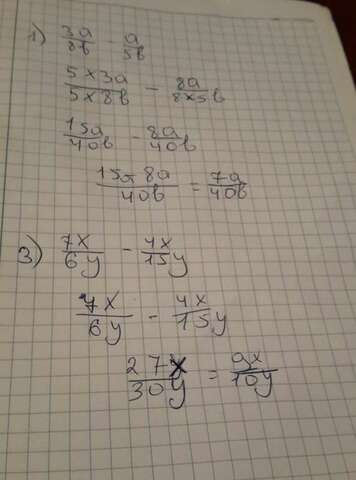 1) 3a/8b - a/5b
5×3a/5×8b - 8a/8×5b
15a/40b - 8a/40b
15a-8a/40b = 7a/40b
3) 7x/6y - 4x/15y
7x/6y - 4x/15y
27x/30y = 9x/10y